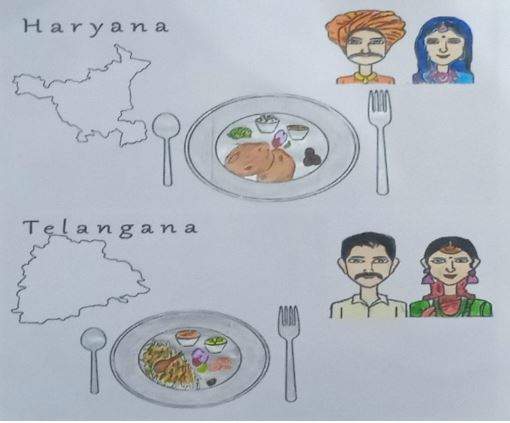 Haryana
Telangana